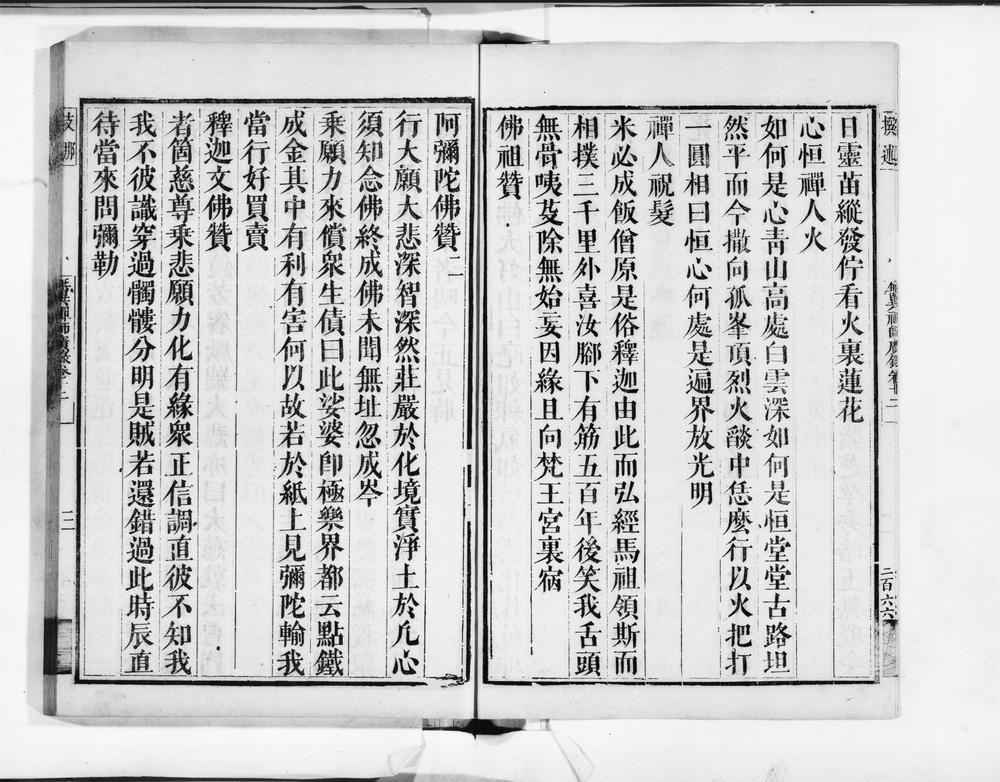 日靈苗縱發佇看火裏蓮花
心恒禪人火
如何是心靑山高處白雲深如何是恒堂堂古路坦
然平而今撒向孤峯頂烈火燄中恁麽行以火把打
一圓相曰恒心何處是遍界放光明
禪人祝髮
米必成飯僧原是俗釋迦由此而弘經馬祖領斯而
相撲三千里外喜汝腳下有筋五百年後笑我舌頭
無骨咦芟除無始妄因緣且向梵王宮裏宿
佛祖贊
阿彌陀佛贊二
行大願大悲深智深然莊嚴於化境實淨土於凡心
須知念佛終成佛未聞無址忽成岑
乘願力來償衆生債曰此娑婆卽極樂界都云點鐵
成金其中有利有害何以故若於紙上見彌陀輸我
當行好買賣
釋迦文佛贊
者箇慈尊乘悲願力化有緣衆正信調直彼不知我
我不彼識穿過髑髏分明是賊若還錯過此時辰直
待當來問彌勒
無異禪師廣錄卷十二
二百六六
無異禪師廣錄卷十二